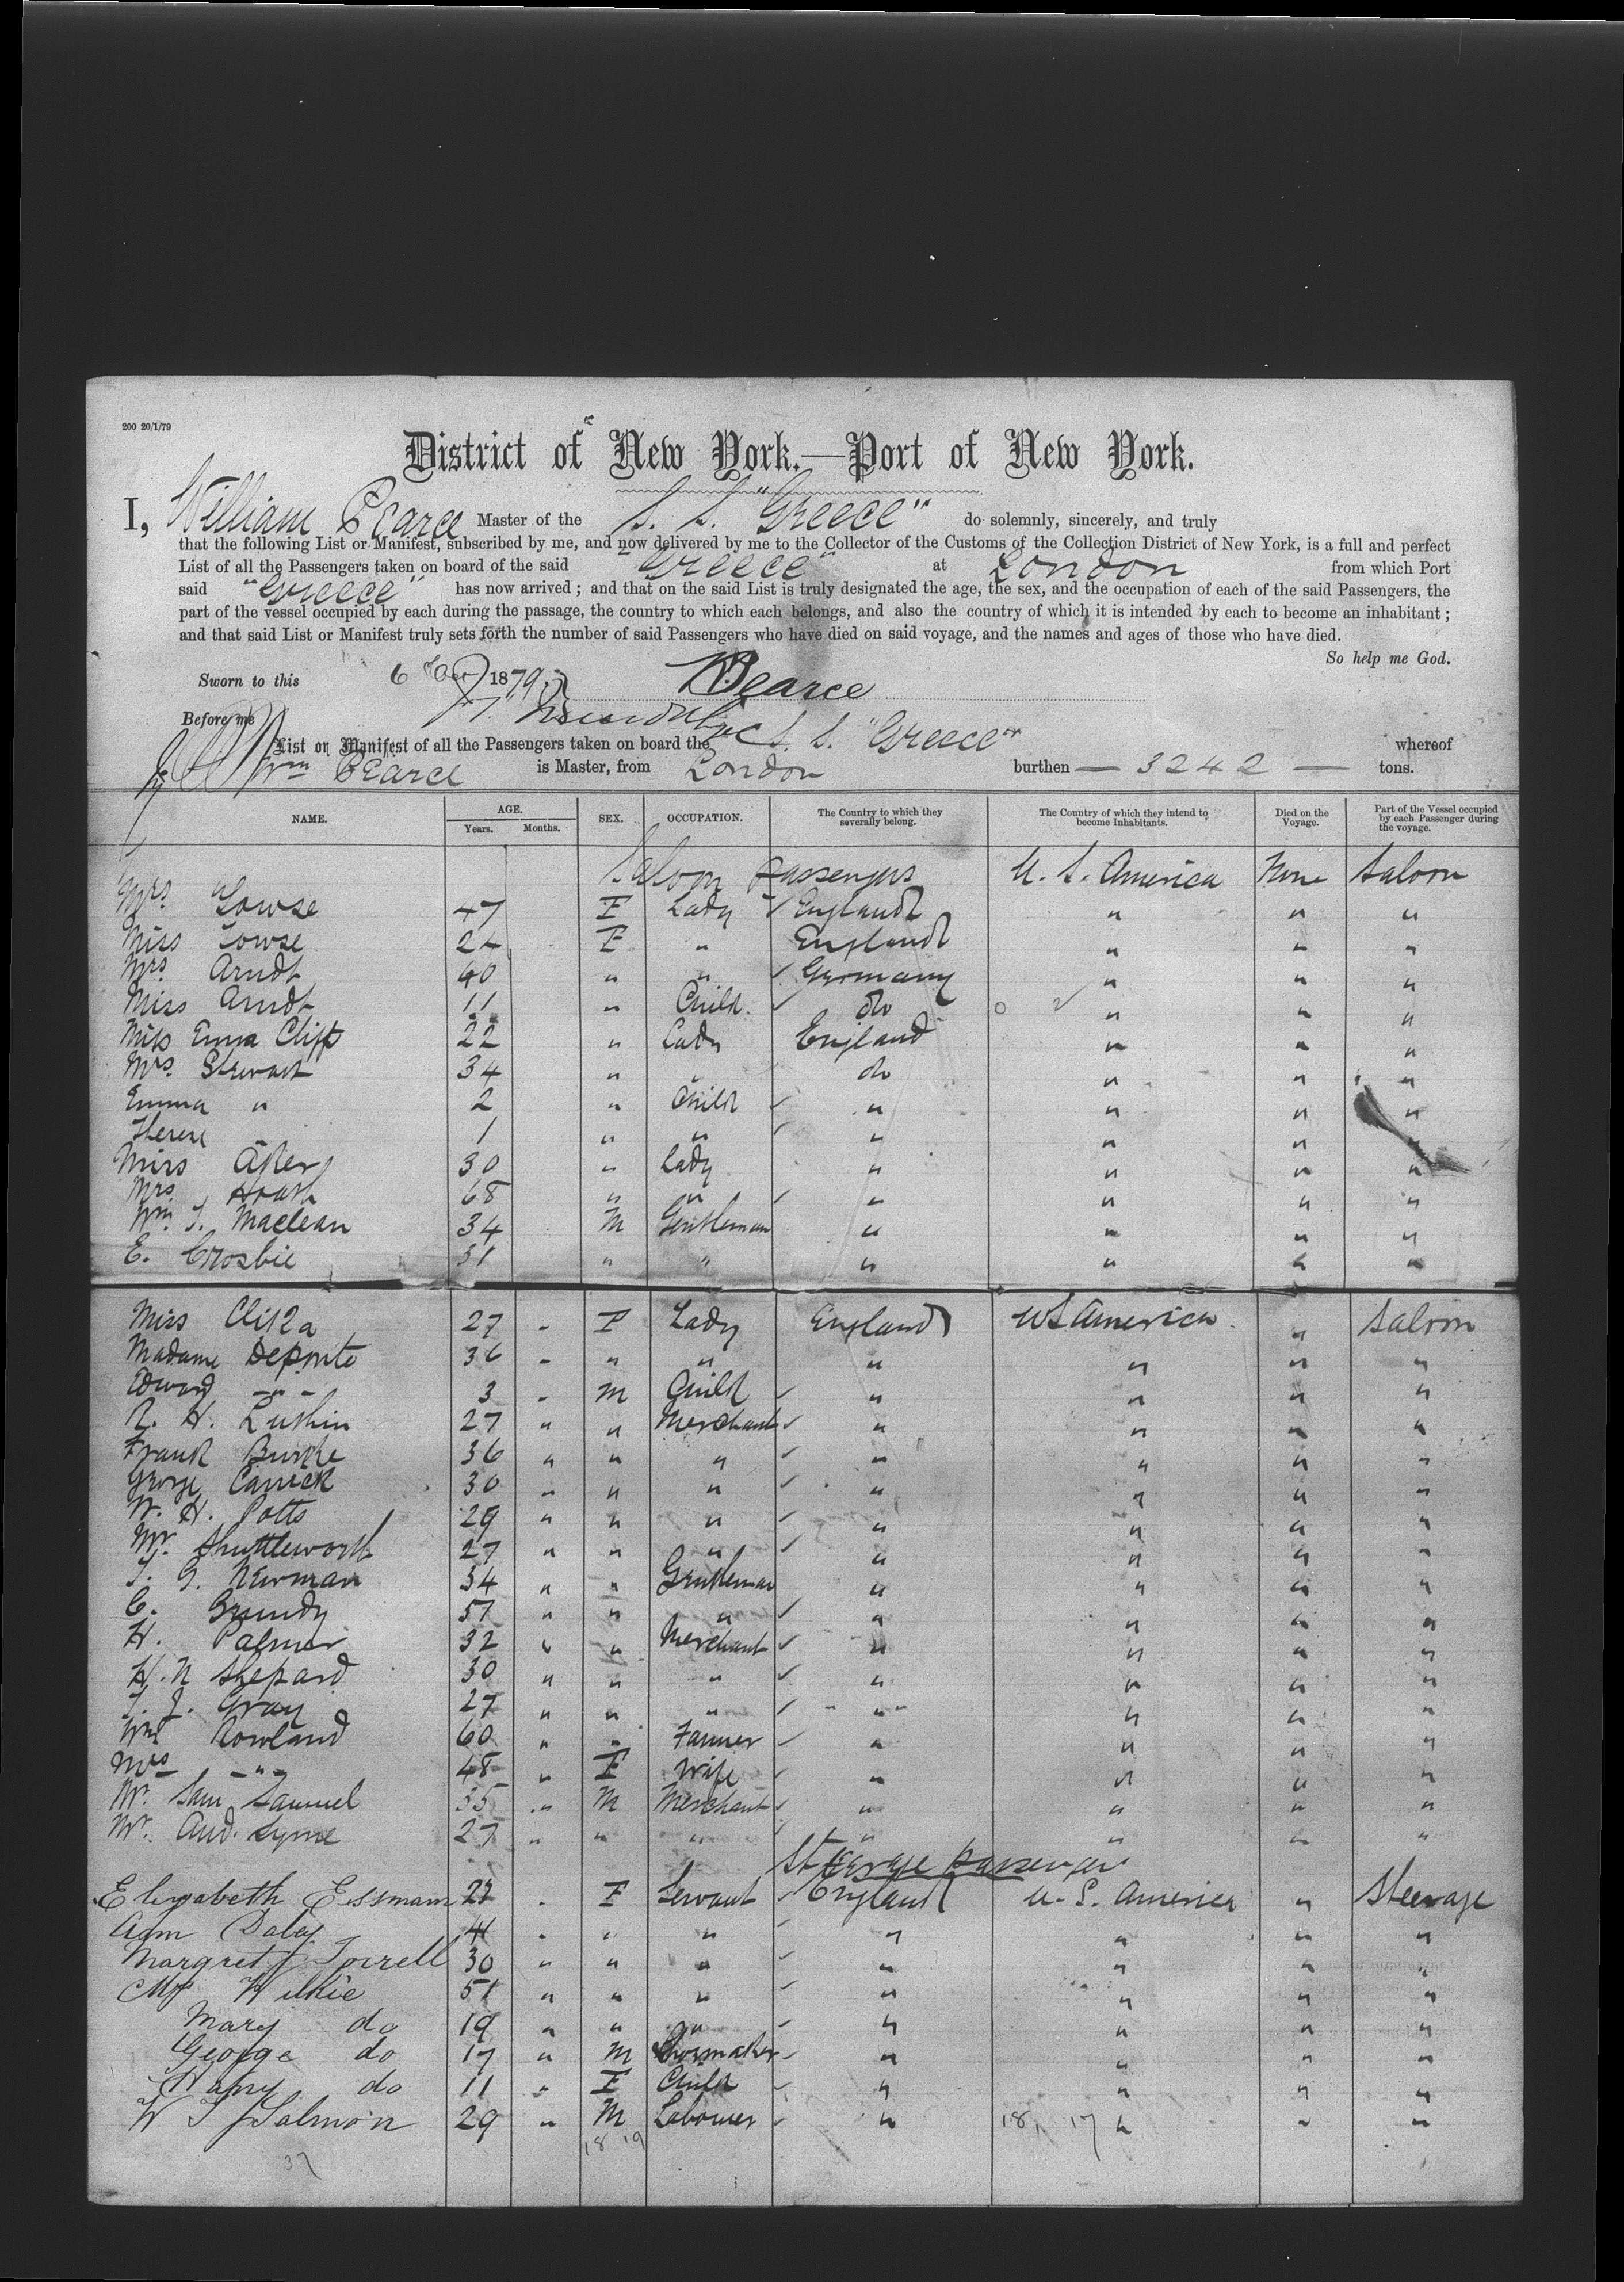 200 20/1/79
District of New York.—Port of New York.
I, William Pearce Master of the S. S. "Greece" do solemnly, sincerely, and truly
that the following List or Manifest, subscribed by me, and now delivered by me to the Collector of the Customs of the Collection District of New York, is a full and perfect
List of all the Passengers taken on board of the said "Greece" at London from which Port
said "Greece" has now arrived; and that on the said List is truly designated the age, the sex, and the occupation of each of the said Passengers, the
part of the vessel occupied by each during the passage, the country to which each belongs, and also the country of which it is intended by each to become an inhabitant;
and that said List or Manifest truly sets forth the number of said Passengers who have died on said voyage, and the names and ages of those who have died.
So help me God.
Sworn to this 6 1879 Pearce
Before me
List or Manifest of all the Passengers taken on board the S. S. "Greece" whereof
Wm Pearce is Master, from London burthen — 3242 — tons.
NAME. AGE. SEX. OCCUPATION. The Country to which they severally belong. The Country of which they intend to become Inhabitants. Died on the Voyage. Part of the Vessel occupied by each Passenger during the voyage.
Years. Months.
Saloon Passengers U. S. America None Saloon
Mrs. Towse 47 F Lady England " " "
Miss Towse 24 F " England " " "
Mrs. Arndt 40 " " Germany " " "
Miss Arndt 11 " Child. do " " "
Miss Emma Clift 22 " Lady England " " "
Mrs. Stewart 34 " " do " " "
Emma " 2 " Child " " " "
Therese " 1 " " " " " "
Miss 30 " Lady " " " "
Mrs. 68 " " " " " "
Wm. T. Maclean 34 M Gentleman " " " "
E. Crosbie 31 " " " " " "
Miss 27 - F Lady England US America " Saloon
Madame Deponte 36 - " " " " " "
Edward -"- 3 - M Child " " " "
R. H. Luskin 27 " " Merchant " " " "
Frank Burke 36 " " " " " " "
George Carrick 30 " " " " " " "
W. H. Potts 29 " " " " " " "
Mr. Shuttleworth 27 " " " " " " "
T. G. Newman 34 " " Gentleman " " " "
C. Grundy 57 " " " " " " "
H. Palmer 32 " " Merchant " " " "
H. N Shepard 30 " " " " " " "
T. J. Gray 27 " " " " " " "
Wm Rowland 60 " " Farmer " " " "
Mrs -"- 48 " F Wife " " " "
Mr. Sam Samuel 35 " M Merchant " " " "
Mr. And. Lyne 27 " " " " " " "
Steerage Passengers
Elizabeth Essmann F Servant England U. S. America " Steerage
Ann Daley " " " " " "
Margret J Torrell 30 " " " " " " "
Mrs Wilkie 51 " " " " " " "
Mary do 19 " " " " " " "
George do 17 " M Shoemaker " " " "
Harry do 11 " F Child " " " "
W T Salmon 29 " M Labourer " " " "
37 18 19 18, 17